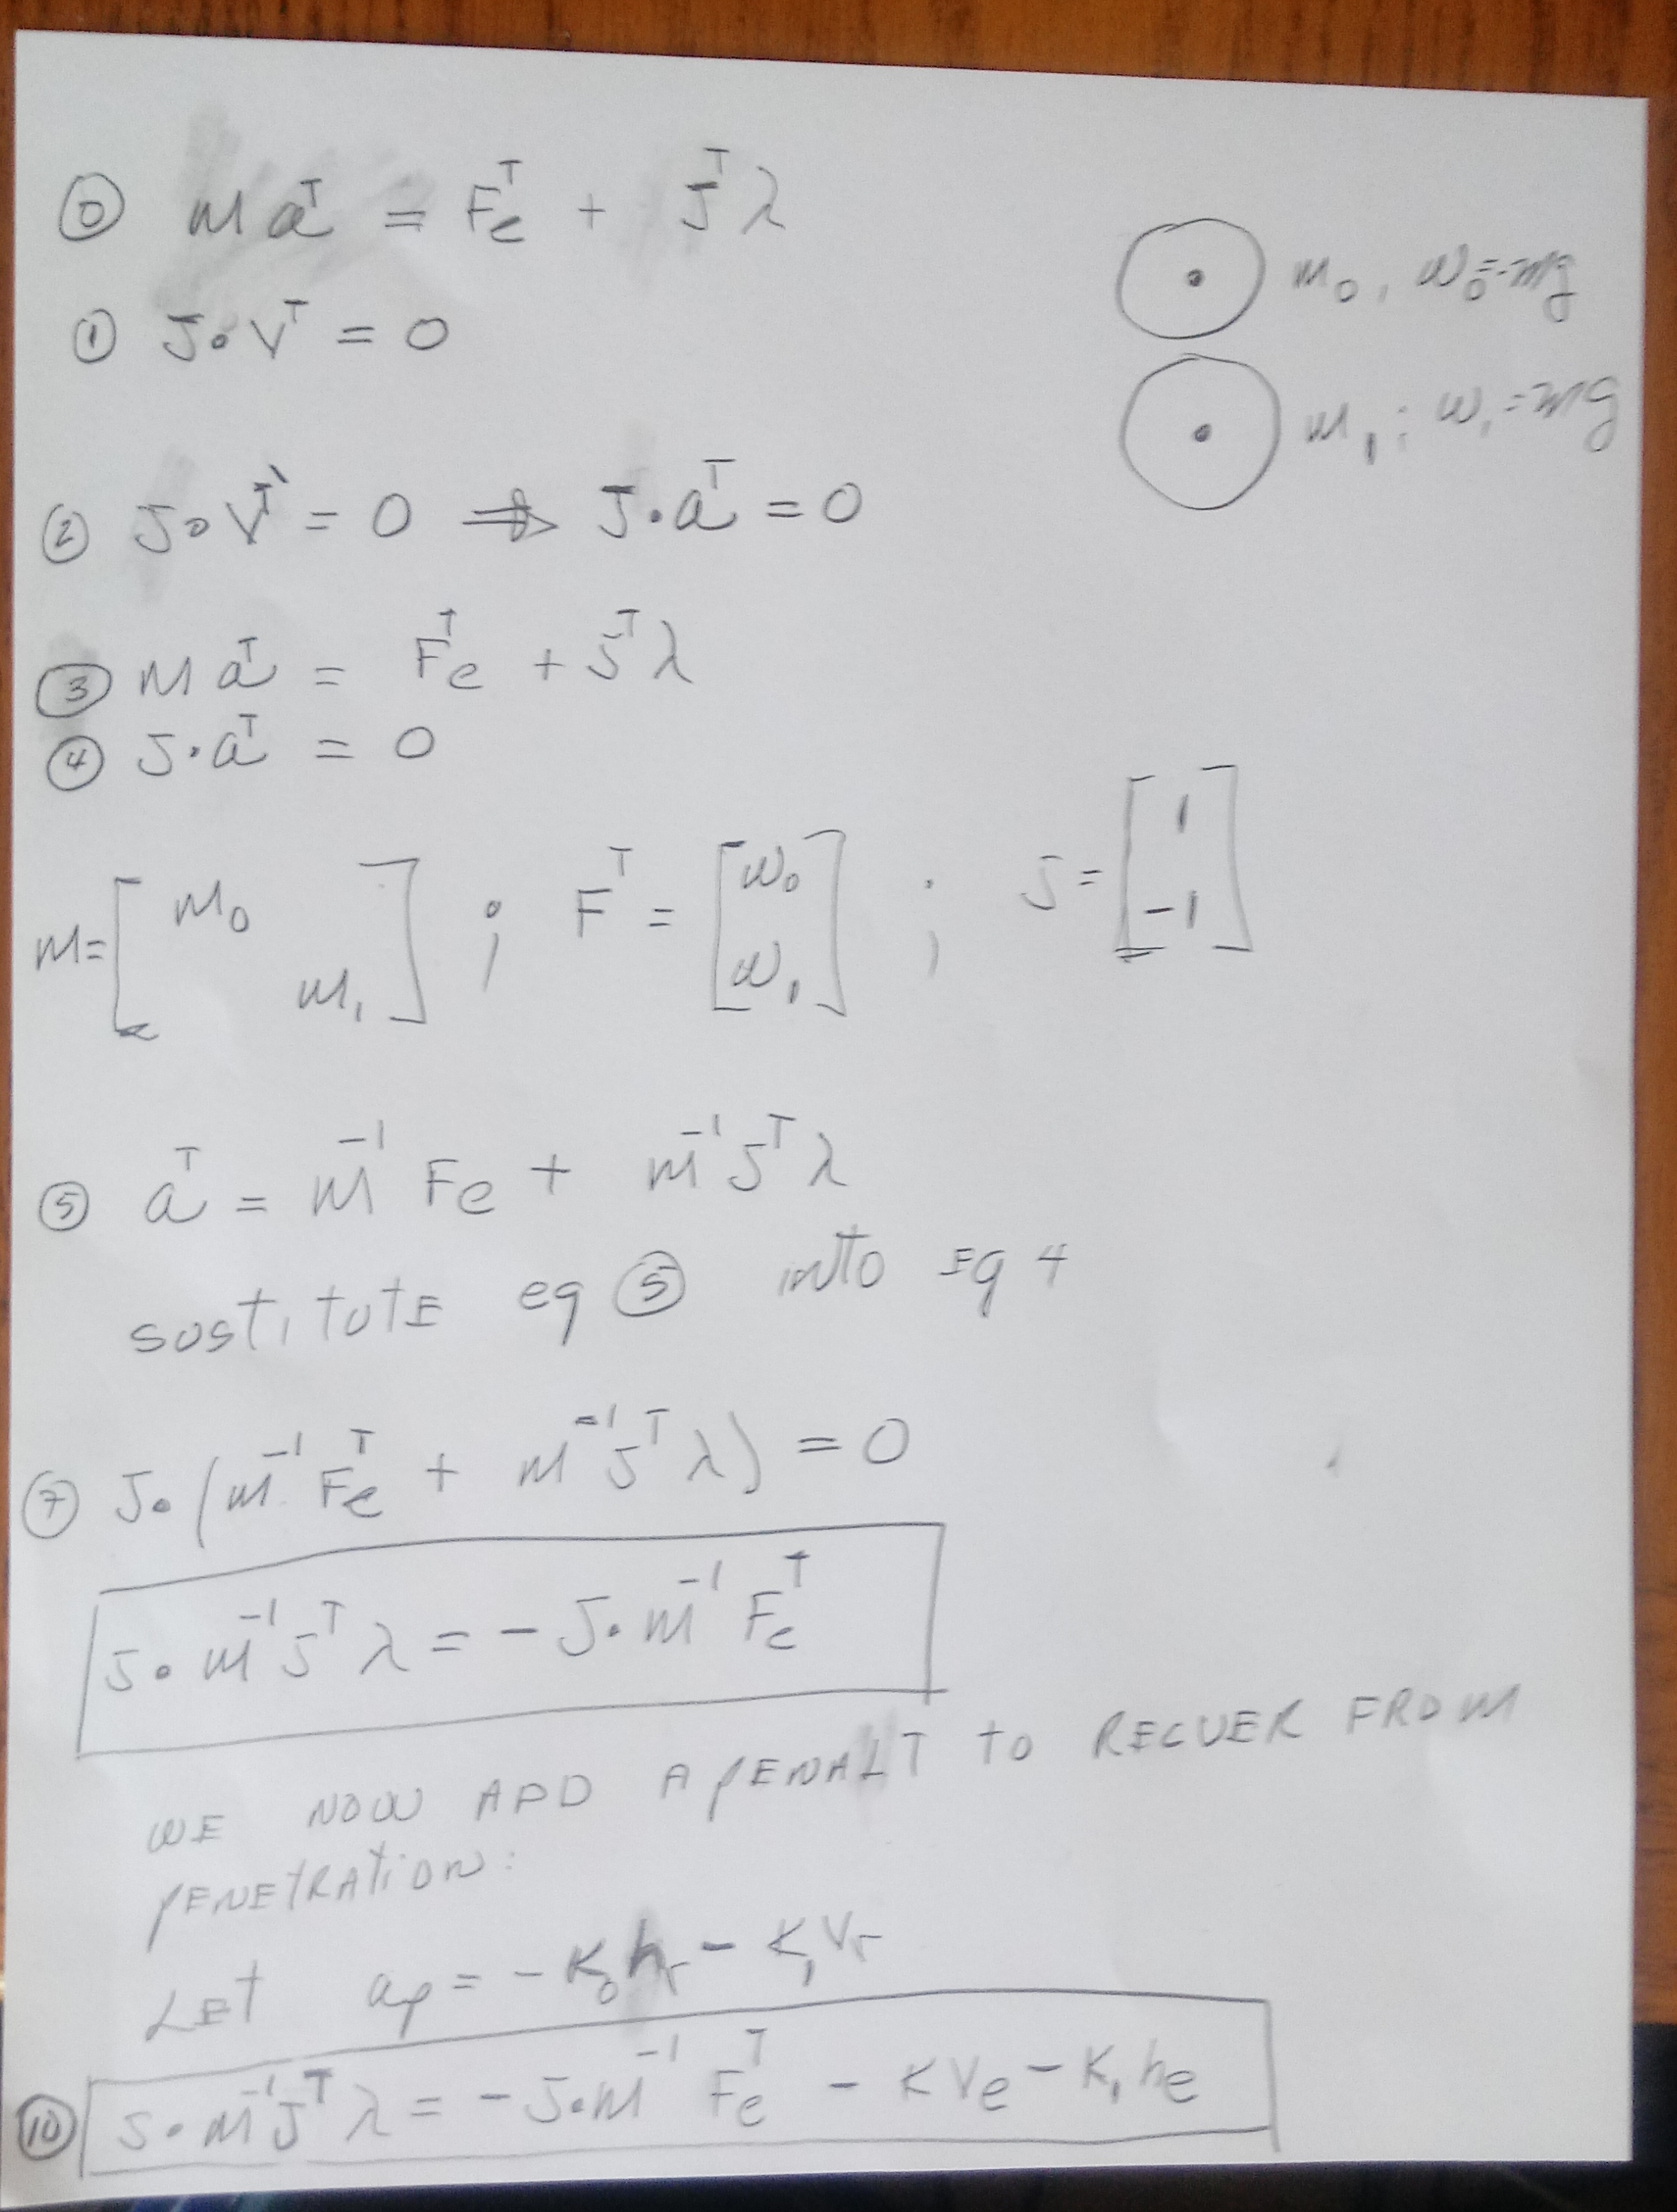 ⓪ M aᵀ = Feᵀ + Jᵀ λ
m₀, w₀=-mg
① J∘Vᵀ = 0
m₁; w₁=mg
② J∘Vᵀ' = 0 ⇒ J·aᵀ = 0
③ M aᵀ = Feᵀ + Jᵀ λ
④ J·aᵀ = 0
M = [m₀ m₁] ; Fᵀ = [w₀ w₁] ; J = [1 -1]
⑤ aᵀ = M⁻¹ Fe + M⁻¹ Jᵀ λ
sostitute eq ⑤ into Eq 4
⑦ J∘(M⁻¹ Feᵀ + M⁻¹ Jᵀ λ) = 0
J∘M⁻¹ Jᵀ λ = - J∘M⁻¹ Feᵀ
WE NOW ADD A PENALT TO RECUER FROM
PENETRATION:
LET ap = - K₀ hr - K₁ Vr
⑩ J∘M⁻¹ Jᵀ λ = - J∘M⁻¹ Feᵀ - K Ve - K₁ he